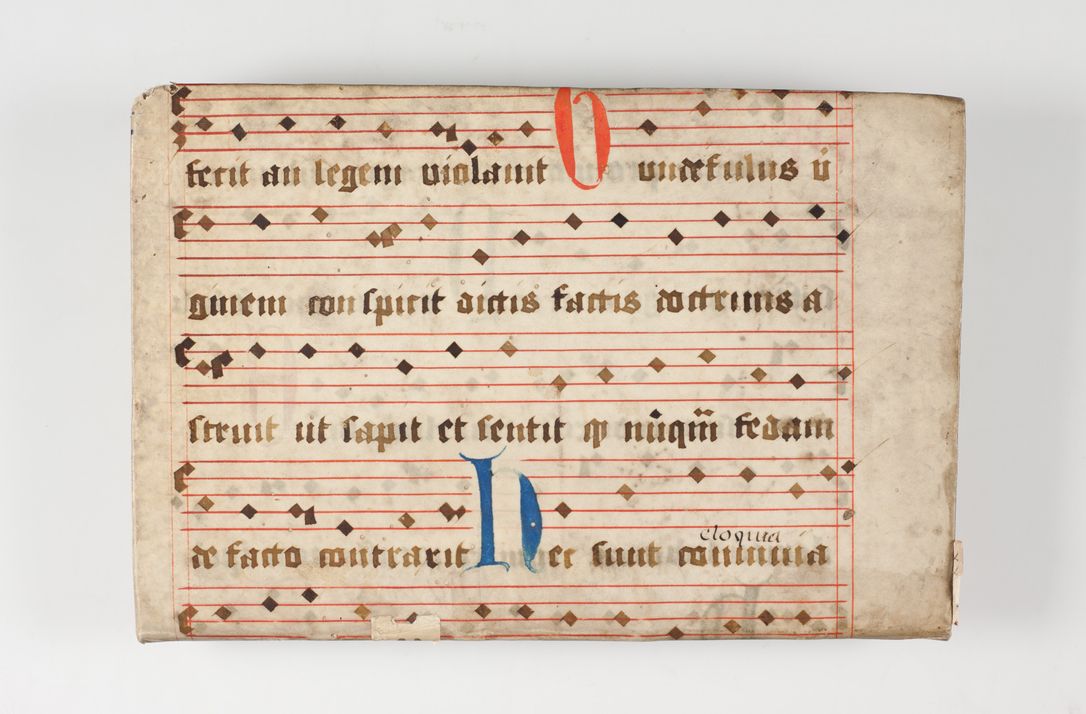 fecit an legem violauit O unc̄efulus v̄
guiem conspicit dictis factis doctrinis a
struit ut sapit et sentit qp nūqm̄ fedam
de facto contraxit Hec sunt conuiuia
eloquia